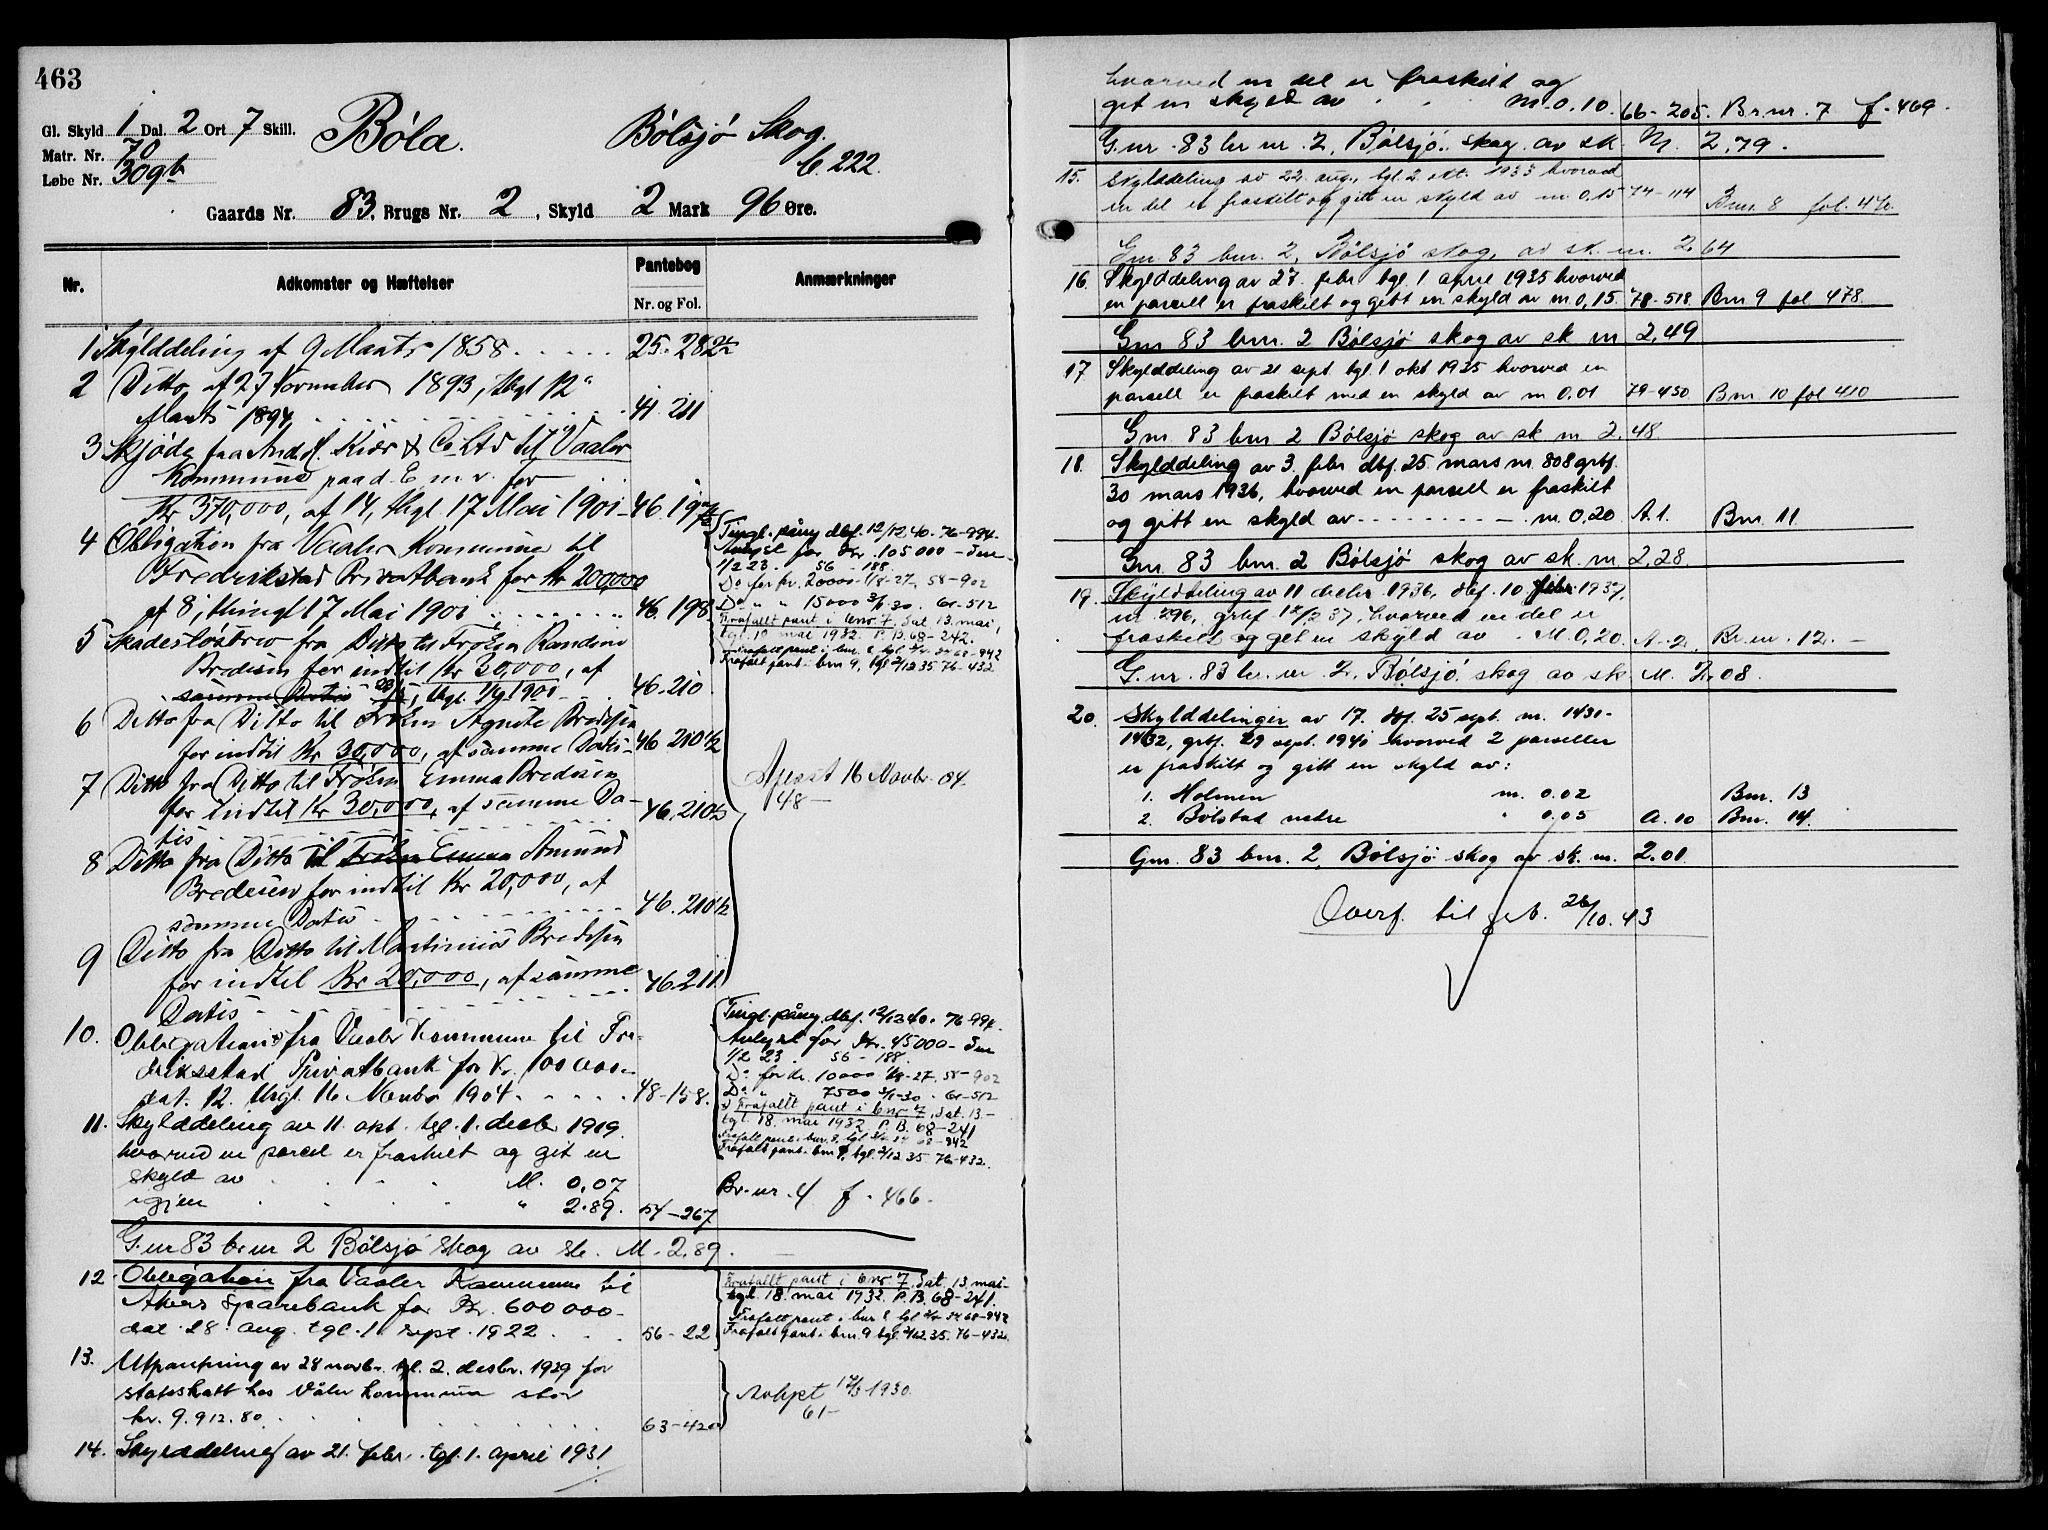 463
Gl. Skyld 1 Dal. 2 Ort 7 Skill.
Matr. Nr. 70
Løbe Nr. 309b
Bóla.
Bólsjó Skog.
b. 222.
Gaards Nr. 83, Brugs Nr. 2, Skyld 2 Mark 96 Øre.
Nr.
Adkomster og Hæftelser
Pantebog
Nr. og Fol.
Anmærkninger
1 Skylddeling af 9 Marts 1858 . . . . . 25. 282
2 Ditto af 27 November 1893, thgl 12
Marts 1894 . . . . 41 211
3 Skjöde fra And. H. Kiær & Co Ltd til Vaaler
Kommune paa d. E. m. v. for
Kr 370,000, af 14, thgl 17 Mai 1901 - 46. 197
4 Obligation fra Vaaler Kommune til
Fredrikstad Privatbank for Kr 200,000
af 8, thingl 17 Mai 1901 . . . . 46. 198
Tingl. påny dbf. 12/12 40. 76-994.
Avlyst for Kr. 105 000 -
1/2 23. 56 - 188.
Do for kr. 20000 - 1/8-27, 58-902
Do " " 15000 3/1-30. 61-512
Frafallt pant i bnr 7, dat. 13. mai,
tgl. 18 mai 1932. P.B. 68-242.
Frafallt pant i bnr. 8 68-942
Frafalt pant i bnr 9, tgl 2/12 35 76-432.
5 Skadeslösbrev fra Ditto til Fröken Randine
Bredesen for indtil Kr 30,000, af
samme Datis 20/5, thgl. 1/9 1901 - 46-210
6 Ditto fra Ditto til Fröken Agnete Bredesen
for indtil Kr 30,000, af samme Datis - 46 210 1/2
7 Ditto fra Ditto til Fröken Emma Bredesen
for indtil Kr 30,000, af samme Da-
tis 46. 210 1/2
8 Ditto fra Ditto til Fröken Emma Amund
Bredesen for indtil Kr 20,000, af
samme Datis 46. 210 1/2
9 Ditto fra Ditto til Martinius Bredesen
for indtil Kr 20,000, af samme
Datis 46. 211.
16 Novbr. 04.
48 -
10. Obligation fra Vaaler Kommune til Fre-
drikstad Privatbank for Kr. 100 000.-
dat. 12. thgl. 16 Novbr 1904 . . . . 48-158.
Tingl. påny dbf. 12/12 40. 76 994.
Avlyst for Kr. 45000 -
1/2 23. 56 - 188.
Do for kr. 10000 1/8-27, 58-902
Do " 7500 3/1-30. 61-512
Frafallt pant i bnr 7, dat. 13. -
tgl. 18. mai 1932 P.B. 68-241
Frafalt pant i bnr. 8, tgl 68-942
Frafalt pant i bnr 9, tgl. 2/12 35 76-432.
11. Skylddeling av 11. okt. tgl. 1. desbr 1919.
hvorved en parcel er fraskilt og git en
skyld av . . . M. 0,07
igjen . . . " 2.89. 54-267
Br. nr. 4 f. 466.
G. nr 83 br. nr 2 Bólsjó skog av sk. M. 2,89.
12 Obligation fra Vaaler Kommune til
Akers Sparebank for Kr. 600 000 -
dat. 28. aug. tgl. 1 sept. 1922. . . . 56-22
Frafallt pant i bnr. 7. dat. 13 mai -
tgl. 18. mai 1932. P.B. 68-241.
Frafalt pant i bnr 8 tgl 68-942
Frafalt pant i bnr. 9 tgl. 2/12 35. 76-432.
13. Utpantning av 28 novbr. tgl. 2. desbr. 1929 for
statsskatt hos Våler kommune stor
kr. 9.912.80 63-420
Avlyst 1930.
61 -
14. Skylddeling av 21. febr. tgl. 1. april 1931
hvorved en del er fraskilt og
git en skyld av . . . M. 0,10. 66-205. Br. nr. 7 f. 469.
G. nr. 83 br nr. 2, Bólsjó skog av sk M. 2,79.
15. Skylddeling av 22. aug., tgl. 2. okt. 1933 hvorved
en del er fraskilt og gitt en skyld av m. 0,15 74-114 Bnr. 8 fol. 470.
Gnr 83 bnr. 2, Bólsjó skog, av sk. m. 2,64
16. Skylddeling av 27. febr. tgl. 1 april 1935 hvorved
en parsell er fraskilt og gitt en skyld av m 0,15. 78-518 Bnr 9 fol 478.
Gnr 83 bnr. 2 Bólsjó skog av sk m 2,49
17 Skylddeling av 21 sept. tgl. 1 okt 1935 hvorved en
parsell er fraskilt med en skyld av m 0,01 79-450 Bnr 10 fol 410
Gnr 83 bnr 2 Bólsjó skog av sk m 2,48
18. Skylddeling av 3. febr dbf. 25. mars nr. 808 grbf.
30 mars 1936, hvorved en parsell er fraskilt
og gitt en skyld av - - - - - m. 0,20 A. 1. Bnr. 11
Gnr. 83 bnr. 2 Bólsjó skog av sk. m 2,28
19. Skylddeling av 11 desbr. 1936, dbf. 10 febr 1937,
nr. 296, grbf. 12/2 37, hvorved en del er
fraskilt og get en skyld av . M. 0,20. A-2. Br. nr. 12. -
G. nr. 83 br. nr 2, Bólsjó skog av sk M. 2,08.
20. Skylddelinger av 17. dbf. 25 sept. nr. 1431-
1432, grbf. 29 sept. 1941 hvorved 2 parseller
er fraskilt og gitt en skyld av:
1. Holmen m. 0.02 Bnr. 13
2. Bólstad nedre " 0.05 A. 10 Bnr. 14.
Gnr. 83 bnr. 2, Bólsjó skog av sk. m. 2.01
Overf. til g.b. 26/10. 43